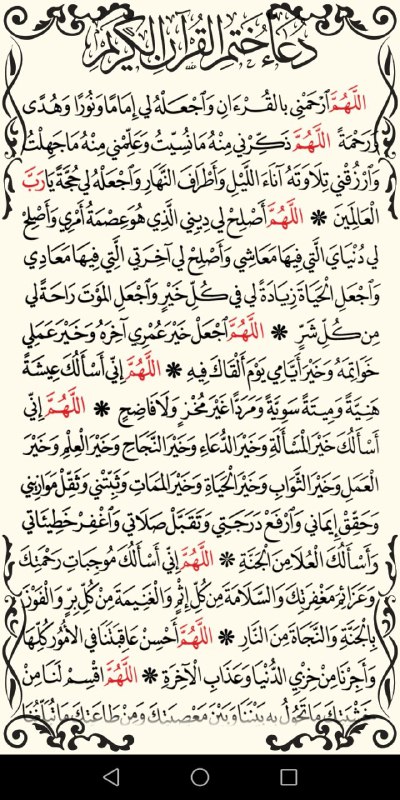 دُعَاءُ خَتْمِ الْقُرْآنِ الْكَرِيمِ
اللَّهُمَّ ارْحَمْنِي بِالقُرْءَانِ وَاجْعَلهُ لِي إِمَامًا وَنُورًا وَهُدًى
وَرَحْمَةً اللَّهُمَّ ذَكِّرْنِي مِنْهُ مَانُسِّيتُ وَعَلِّمْنِي مِنْهُ مَاجَهِلْتُ
وَارْزُقْنِي تِلاَوَتَهُ آنَاءَ اللَّيْلِ وَأَطْرَافَ النَّهَارِ وَاجْعَلْهُ لِي حُجَّةً يَارَبَّ
الْعَالَمِينَ ❋ اللَّهُمَّ أَصْلِحْ لِي دِينِي الَّذِي هُوَ عِصْمَةُ أَمْرِي وَأَصْلِحْ
لِي دُنْيَايَ الَّتِي فِيهَا مَعَاشِي وَأَصْلِحْ لِي آخِرَتِي الَّتِي فِيهَا مَعَادِي
وَاجْعَلِ الْحَيَاةَ زِيَادَةً لِي فِي كُلِّ خَيْرٍ وَاجْعَلِ المَوْتَ رَاحَةً لِي
مِن كُلِّ شَرٍّ ❋ اللَّهُمَّ اجْعَلْ خَيْرَ عُمْرِي آخِرَهُ وَخَيْرَ عَمَلِي
خَوَاتِمَهُ وَخَيْرَ أَيَّامِي يَوْمَ أَلْقَاكَ فِيهِ ❋ اللَّهُمَّ إِنِّي أَسْأَلُكَ عِيشَةً
هَنِيَّةً وَمِيتَةً سَوِيَّةً وَمَرَدًّا غَيْرَ مُخْزٍ وَلَا فَاضِحٍ ❋ اللَّهُمَّ إِنِّي
أَسْأَلُكَ خَيْرَ المَسْأَلَةِ وَخَيْرَ الدُّعَاءِ وَخَيْرَ النَّجَاحِ وَخَيْرَ العِلْمِ وَخَيْرَ
العَمَلِ وَخَيْرَ الثَّوَابِ وَخَيْرَ الْحَيَاةِ وَخَيْرَ المَمَاتِ وَثَبِّتْنِي وَثَقِّلْ مَوَازِينِي
وَحَقِّقْ إِيمَانِي وَارْفَعْ دَرَجَتِي وَتَقَبَّلْ صَلَاتِي وَاغْفِرْ خَطِيئَاتِي
وَأَسْأَلُكَ الْعُلَا مِنَ الْجَنَّةِ ❋ اللَّهُمَّ إِنِّي أَسْأَلُكَ مُوجِبَاتِ رَحْمَتِكَ
وَعَزَائِمَ مَغْفِرَتِكَ وَالسَّلَامَةَ مِن كُلِّ إِثْمٍ وَالْغَنِيمَةَ مِنْ كُلِّ بِرٍّ وَالْفَوْزَ
بِالْجَنَّةِ وَالنَّجَاةَ مِنَ النَّارِ ❋ اللَّهُمَّ أَحْسِنْ عَاقِبَتَنَا فِي الأُمُورِ كُلِّهَا
وَأَجِرْنَا مِنْ خِزْيِ الدُّنْيَا وَعَذَابِ الْآخِرَةِ ❋ اللَّهُمَّ اقْسِمْ لَنَا مِنْ
خَشْيَتِكَ مَا تَحُولُ بِهِ بَيْنَنَا وَبَيْنَ مَعْصِيَتِكَ وَمِنْ طَاعَتِكَ مَا تُبَلِّغُنَا